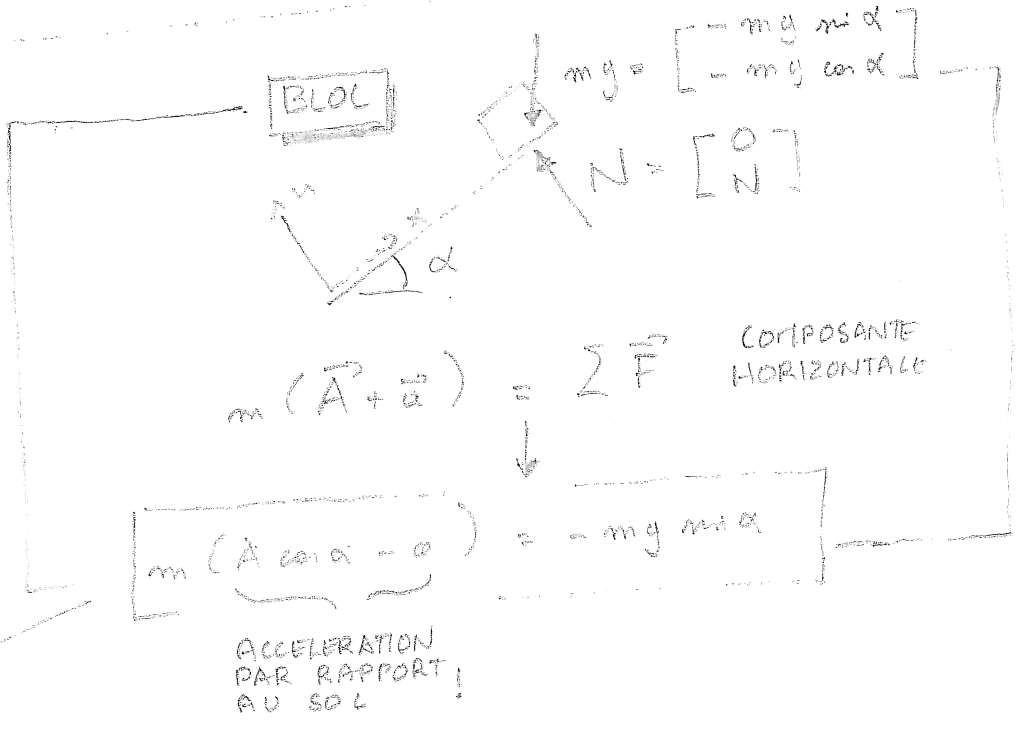 BLOC
mg = [ - mg sin α
- mg cos α ]
N = [ 0
N ]
x
α
m ( A⃗ + a⃗ ) = Σ F⃗
COMPOSANTE
HORIZONTALE
m ( A cos α - a ) = - mg sin α
ACCELERATION
PAR RAPPORT
AU SOL !